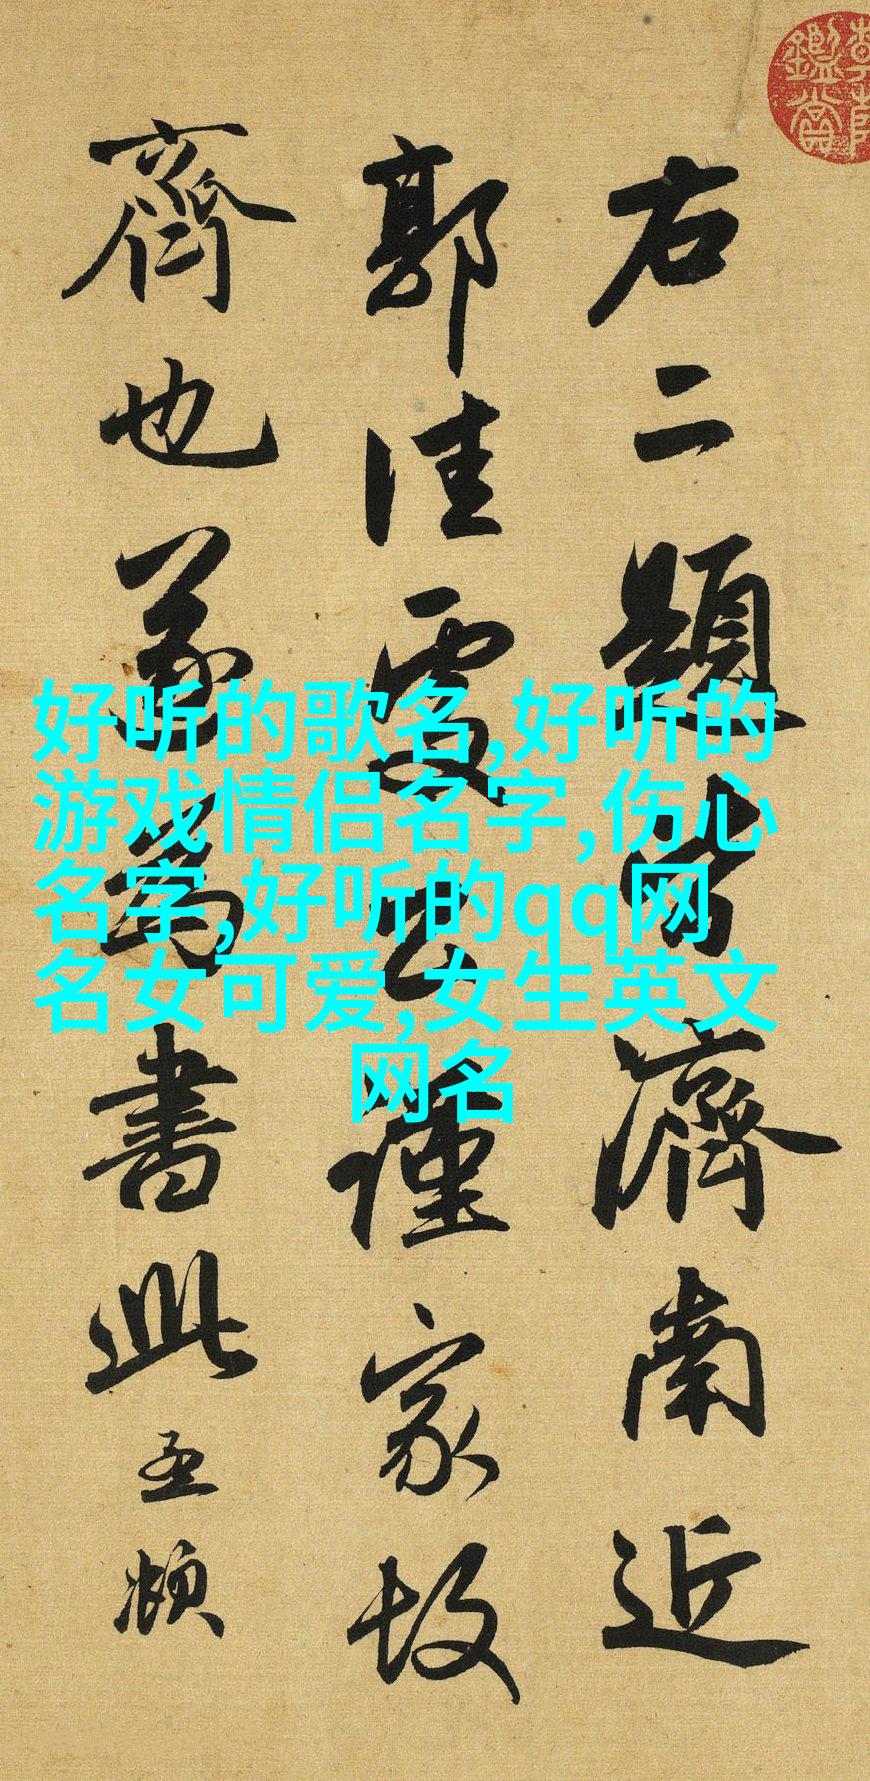 右二題皆濟南近
郭佳處公謹家故
齊也遂為書此孟頫
好听的歌名,好听的
游戏情侣名字,伤心
名字,好听的qq网
名女可爱,女生英文
网名